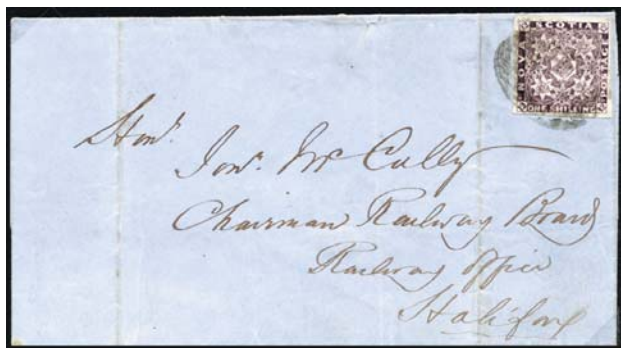 NOVA SCOTIA POSTAGE
ONE SHILLING
Honl.
Jon. McCully
Chairman Railway Board
Railway Office
Halifax